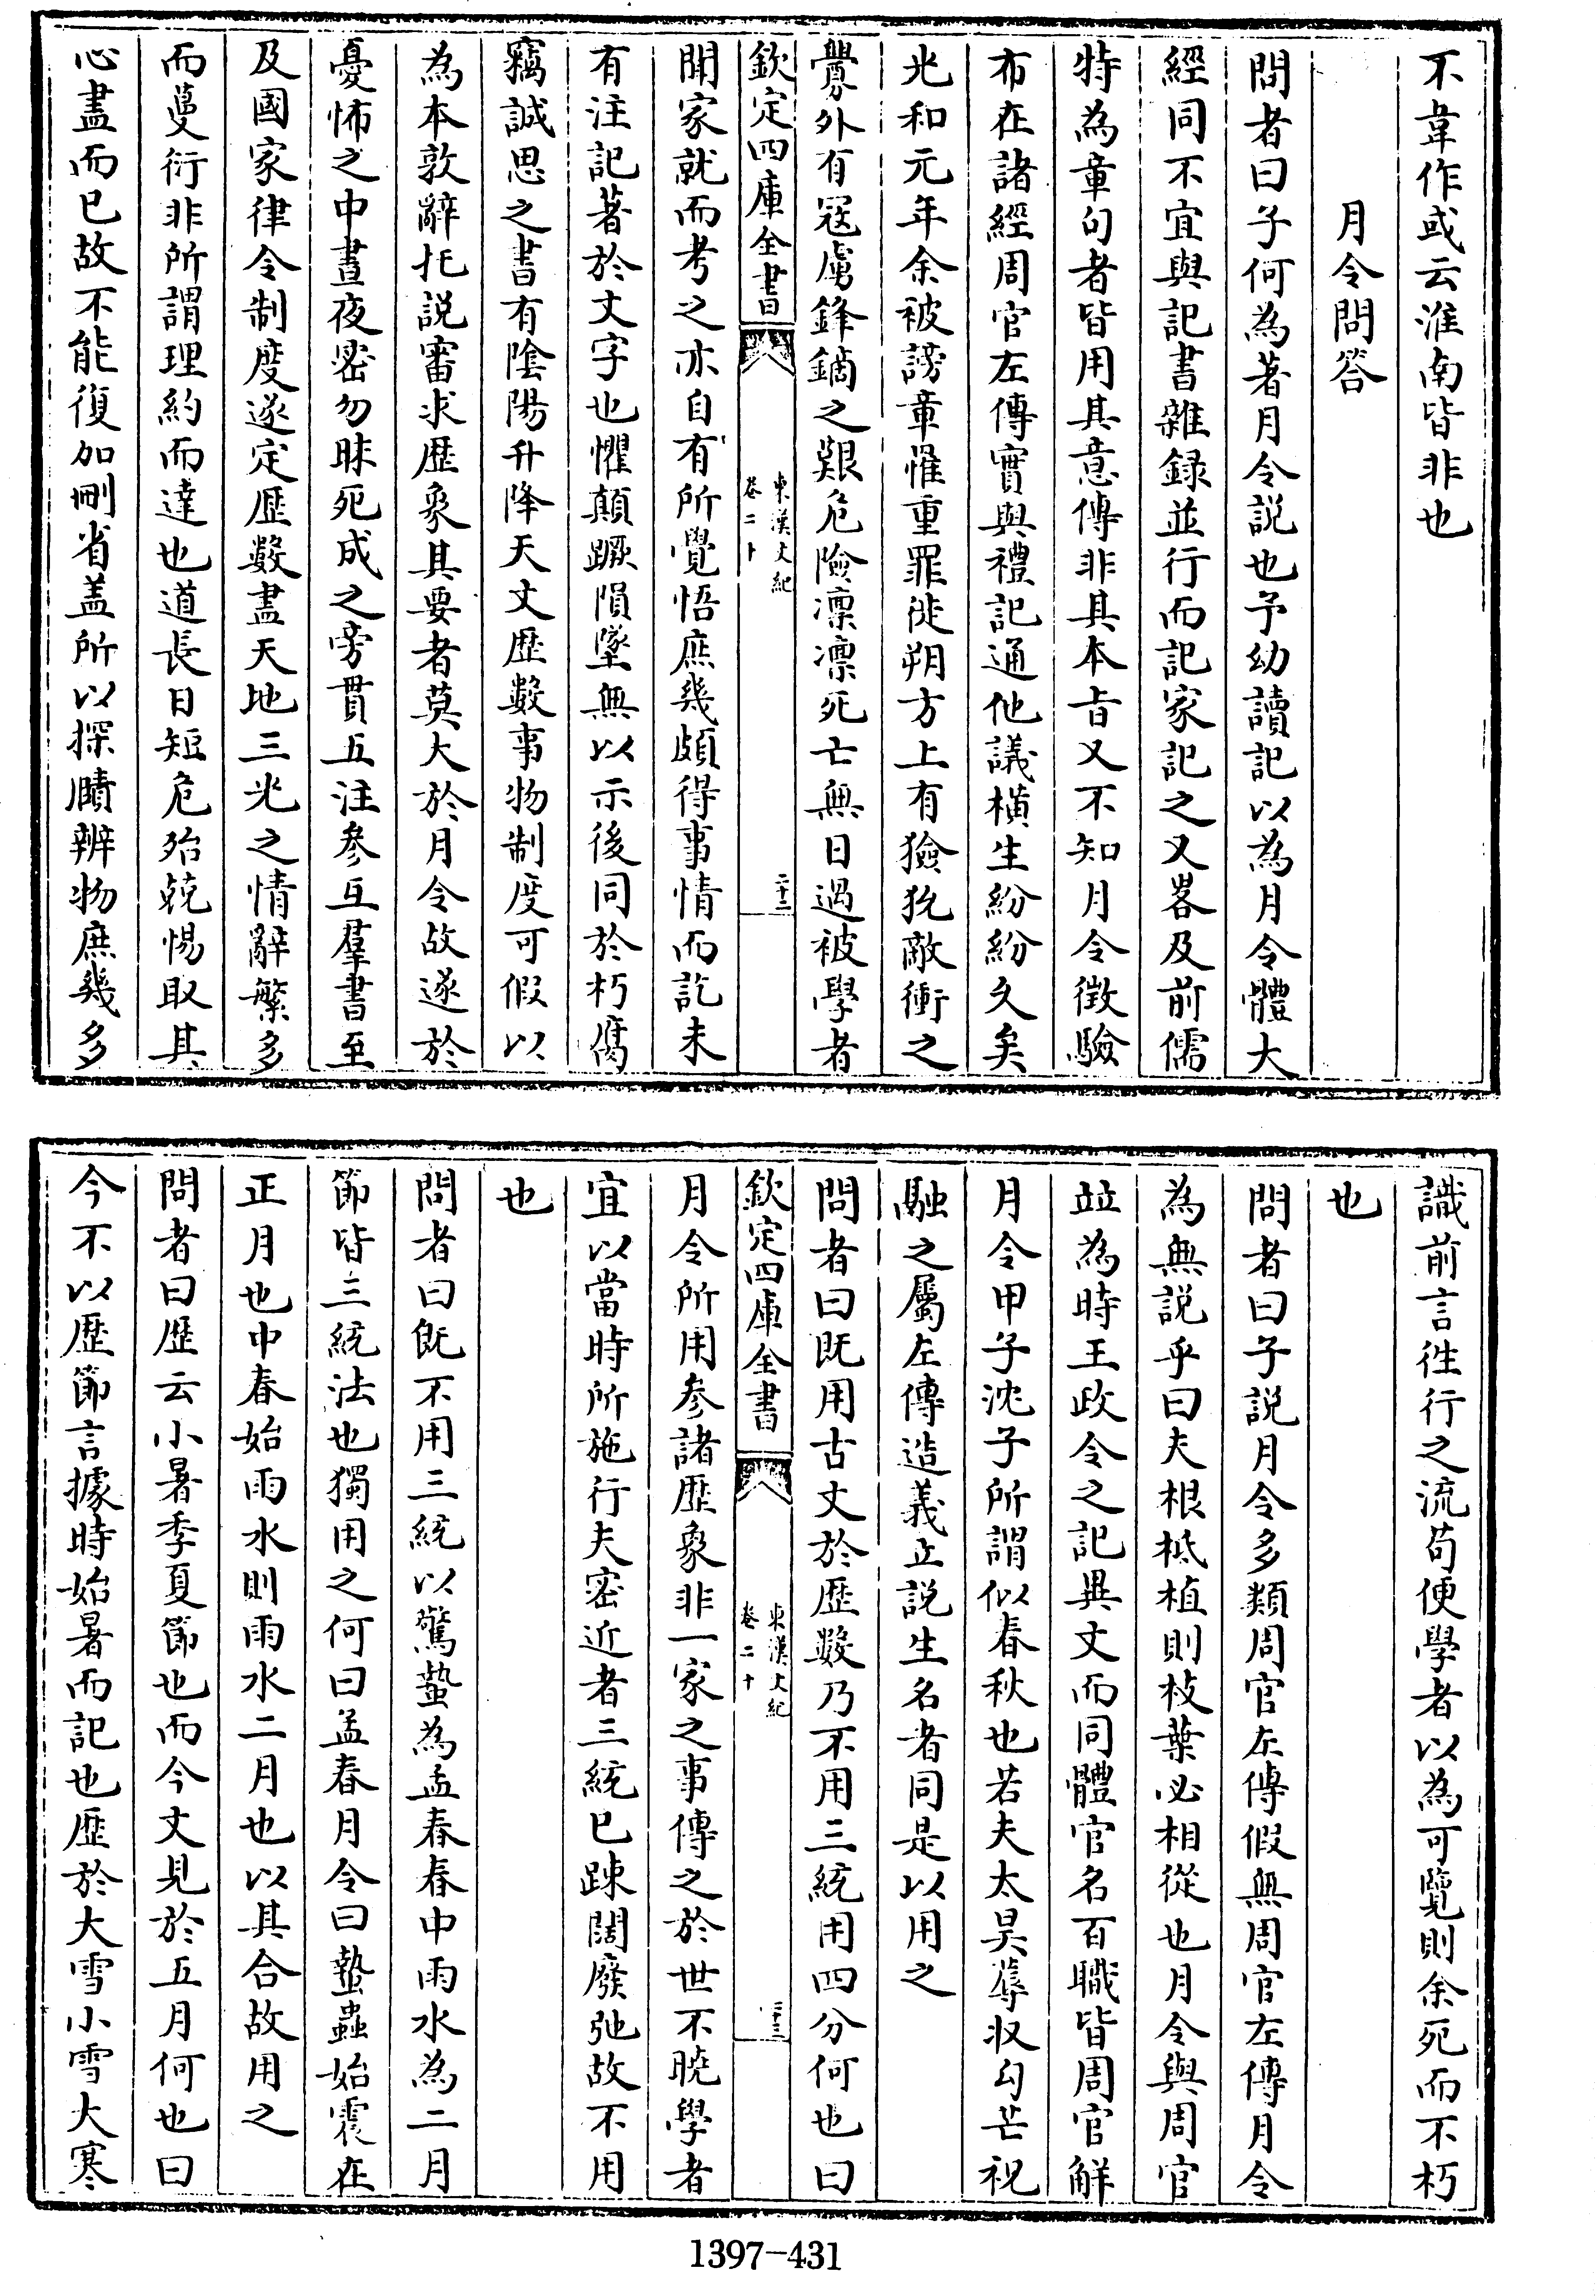 不韋作或云淮南皆非也
月令問答
問者曰子何為著月令説也予幼讀記以為月令體大
經同不宜與記書雜録並行而記家記之又畧及前儒
特為章句者皆用其意傳非其本旨又不知月令徴驗
布在諸經周官左傳實與禮記通他議横生紛紛久矣
光和元年余被謗章罹重罪徙朔方上有獫狁敵衝之
釁外有寇虜鋒鏑之艱危險凛凛死亡無日過被學者
欽定四庫全書
東漢文紀
卷二十
二十二
聞家就而考之亦自有所覺悟庶幾頗得事情而訖未
有注記著於文字也懼顛蹶隕墜無以示後同於朽腐
竊誠思之書有陰陽升降天文歴數事物制度可假以
為本敦辭托説審求歴象其要者莫大於月令故遂於
憂怖之中晝夜密勿昧死成之旁貫五注參互羣書至
及國家律令制度遂定歴數盡天地三光之情辭繁多
而蔓衍非所謂理約而達也道長日短危殆兢惕取其
心盡而已故不能復加刪省盖所以探賾辨物庶幾多
識前言徃行之流苟便學者以為可覽則余死而不朽
也
問者曰子説月令多類周官左傳假無周官左傳月令
為無説乎曰夫根柢植則枝葉必相從也月令與周官
竝為時王政令之記異文而同體官名百職皆周官解
月令甲子沈子所謂似春秋也若夫太昊蓐収勾芒祝
融之屬左傳造義立説生名者同是以用之
問者曰既用古文於歴數乃不用三統用四分何也曰
欽定四庫全書
東漢文紀
卷二十
二十三
月令所用參諸歴象非一家之事傳之於世不曉學者
宜以當時所施行夫密近者三統已疎闊廢弛故不用
也
問者曰既不用三統以驚蟄為孟春春中雨水為二月
節皆三統法也獨用之何曰孟春月令曰蟄蟲始震在
正月也中春始雨水則雨水二月也以其合故用之
問者曰歴云小暑季夏節也而今文見於五月何也曰
今不以歴節言據時始暑而記也歴於大雪小雪大寒
1397-431